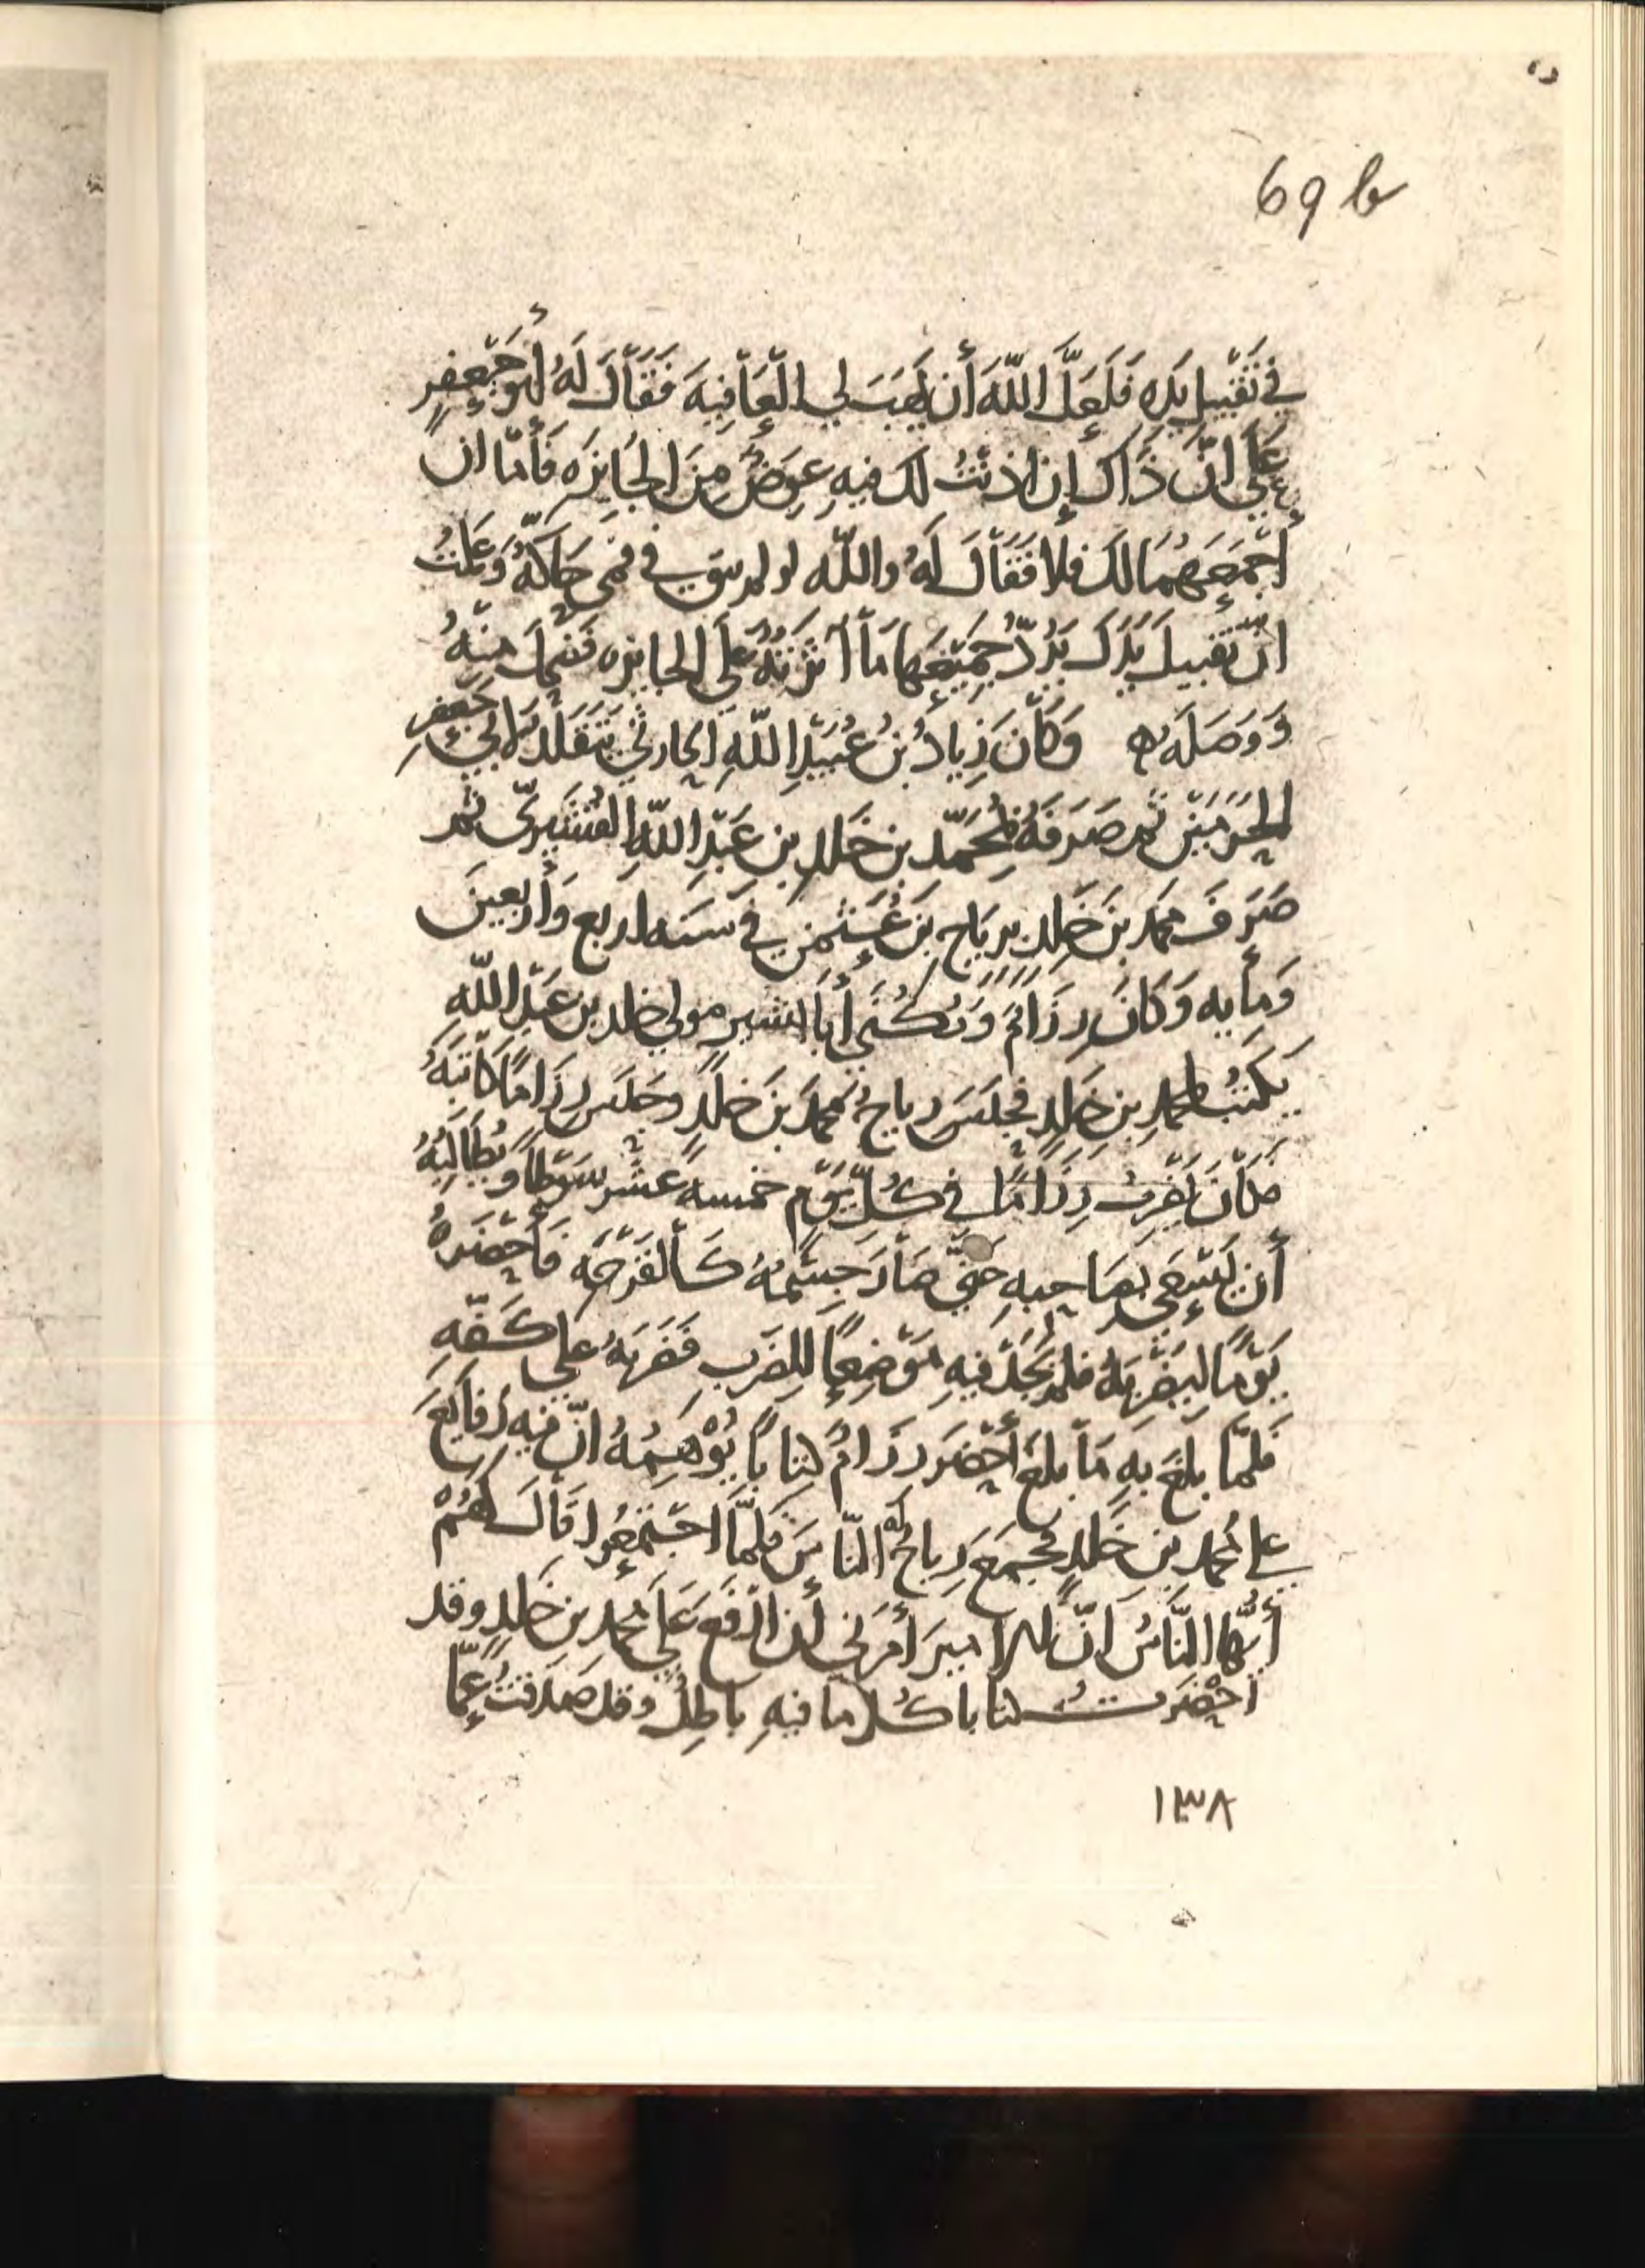 69 b
في تَقْبِيلِ يَدِهِ فَلَعَلَّ اللّهَ أَن يَهَبَ لِي الْعَافِيَةَ فَقَالَ لَهُ أبو جَعْفَرٍ
عَلَي انَّ ذَاكَ إِن اذنْتُ لك فيهِ عِوَضٌ مِنَ الجَائِزَه فَأَمّا ان
أَجْمَعَهُمَا لكَ فلا فَقَالَ لَهُ والله لو لم يبق في فمي حَاكَّةٌ وَعَلمْتُ
انّ تَقبيلَ يَدَكَ يَرُدّ جَمِيْعَهَا مَا آثَرْتُهُ عَلَي الجايزه فَضَحِكَ منْهُ
وَوَصَلَه وَكَانَ زِيادُ بنُ عُبَيْدِ اللّهِ الحارثي يَتَقَلَّد لابي جَعْفَرِ
الحَرَمَيْن ثم صَرَفَهُ بمُحَمّد بن خَلدِ بن عَبْدِ اللّهِ القُشَيْرِيّ ثم
صَرَفَ محمد بنَ خَلدٍ برِيَاحِ بنِ عُثمن في سَنَه اربع وَأربَعينَ
وَمأيه وَكَانَ رِزَامٌ وَيُكْنَي أَبَا البشير مولي خلد بن عَبْدِ اللّهِ
يَكتُبُ لمحمدِ بنِ خَلدٍ فحَبَسَ رياحٌ محمدَ بنَ خلدٍ وحَبَسَ رِزَامًا كَاتبَهُ
فكَانَ يَضْرِبُ رِزَامًا في كُلِّ يَوْمٍ خمسه عشَر سَوْطًا وَيُطَالِبُهُ
أَن يَسْعَي بصَاحِبهِ حَتَّي صَارَ جِسْمُهُ كَالقَرْحَه فَأحْضَرَهُ
يَوْمًا لِيَضْرِبَهُ فلم يَجد فيهِ مَوْضِعًا لِلضَرب فَضَرَبَهُ علي كَفّهِ
فَلمّا بلغَ بهِ مَا بلغَ أَحْضَرَ رزَامٌ كتابًا يُوْهِمُهُ انّ فيهِ رَفايَعَ
علي محمد بن خَلدٍ فجَمَعَ رِياحٌ لَه النّاسَ فَلمّا اجْتَمعُوا قالَ لَهُمْ
أيّها النّاسُ انّ الاميرَ أمرَني أن ارْفَعَ عَلَي محمد بن خلدٍ وقد
احْضَرتُ كتابا كُلّ ما فيهِ باطِلٌ وقد صَدَقتُ عَمّا
١٣٨